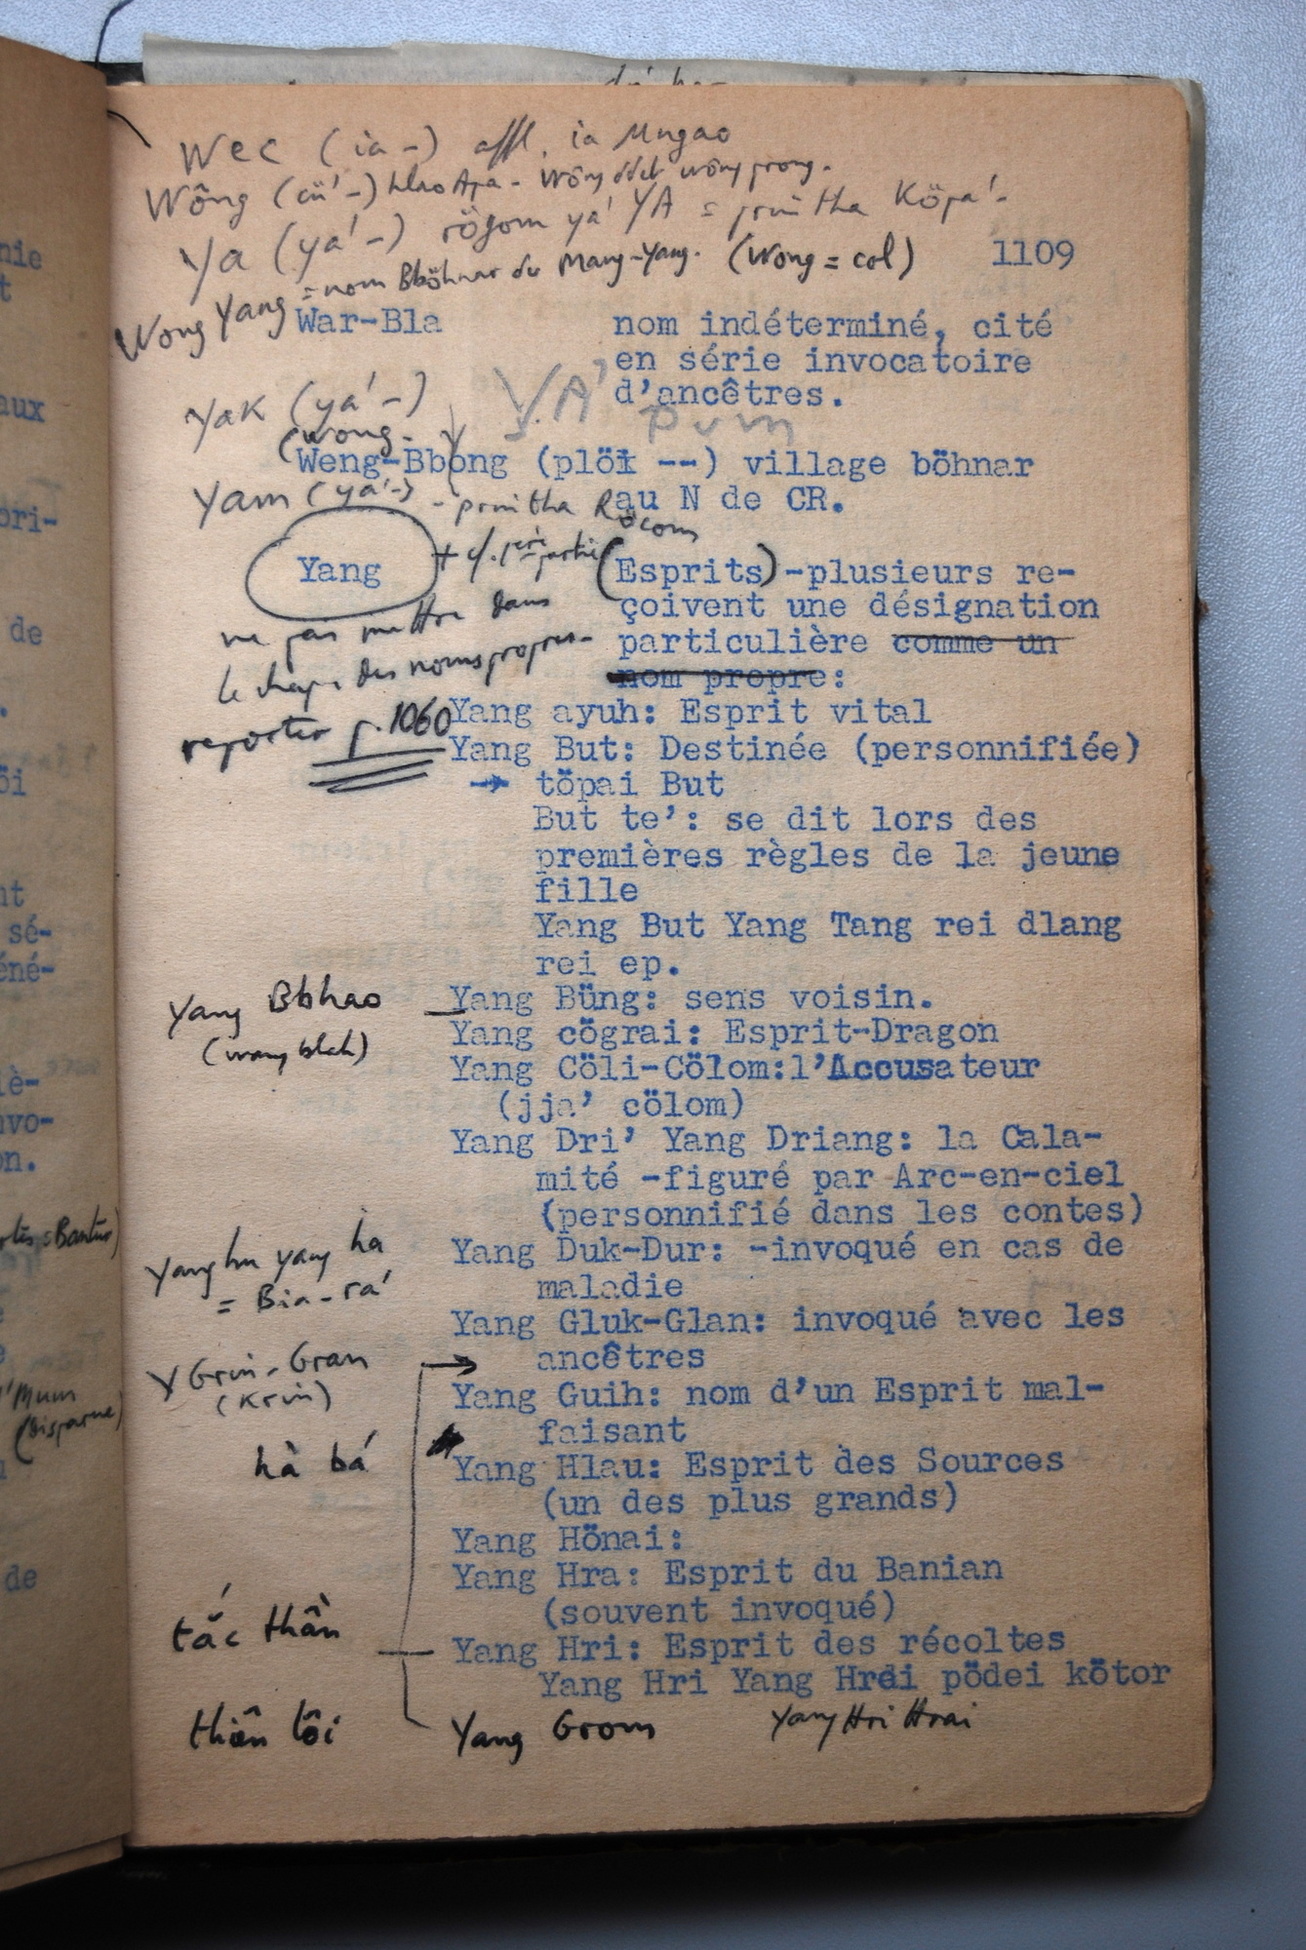 Wec (ia -) affl. ia Mngao
Wông (cü' -) hlao Apa - Wông prong.
Ya (ya' -) rögom ya' YA = Köpa' -
Wong Yang = nom Bböhnar du Mang-Yang. (Wong = col) 1109
War-Bla nom indéterminé, cité
en série invocatoire
d'ancêtres.
Yak (ya' -) YA' Pum
(Wong -
Weng-Bbong (plöi --) village böhnar
au N de CR.
Yam (ya' -) - Röcom
Yang + cf. 1ère partie (Esprits)-plusieurs re-
çoivent une désignation
particulière comme un
nom propre:
ne pas mettre dans
le chap. des noms propres -
reporter p. 1060
Yang ayuh: Esprit vital
Yang But: Destinée (personnifiée)
→ töpai But
But te': se dit lors des
premières règles de la jeune
fille
Yang But Yang Tang rei dlang
rei ep.
Yang Bbhao
Yang Büng: sens voisin.
Yang cögrai: Esprit-Dragon
Yang Cöli-Cölom:l'Accusateur
(jja' cölom)
Yang Dri' Yang Driang: la Cala-
mité -figuré par Arc-en-ciel
(personnifié dans les contes)
Yang hu yang ha
= Bia-ra'
Yang Duk-Dur: -invoqué en cas de
maladie
Yang Gluk-Glan: invoqué avec les
ancêtres
Y Grin-Gran
(Krin)
Yang Guih: nom d'un Esprit mal-
faisant
hà bá
Yang Hlau: Esprit des Sources
(un des plus grands)
Yang Hönai:
Yang Hra: Esprit du Banian
(souvent invoqué)
tắc thần
Yang Hri: Esprit des récoltes
Yang Hri Yang Hrei pödei kötor
thiên lôi Yang Grom Yang Hri Hrai